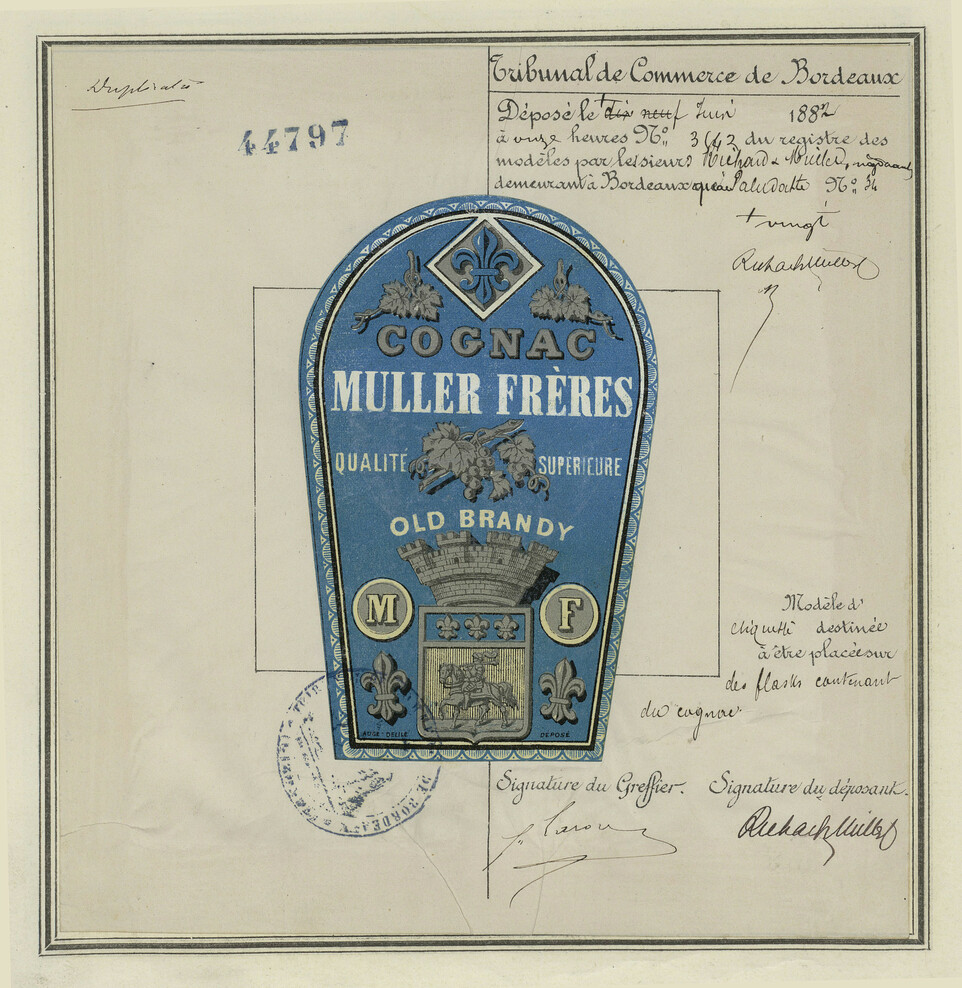 Duplicata
44797
Tribunal de Commerce de Bordeaux
Déposé le + dix neuf Juin 1882
à onze heures N° 3642 du registre des
modèles par les sieurs Richard & Muller, négociants
demeurant à Bordeaux quai Paludate N° 34
+ vingt
Richard & Muller
COGNAC
MULLER FRÈRES
QUALITÉ SUPÉRIEURE
OLD BRANDY
M F
DÉPOSÉ
Modèle d'
étiquette destinée
à être placée sur
des flasks contenant
du cognac
DE BORDEAUX
Signature du Greffier. Signature du déposant.
Richard & Muller